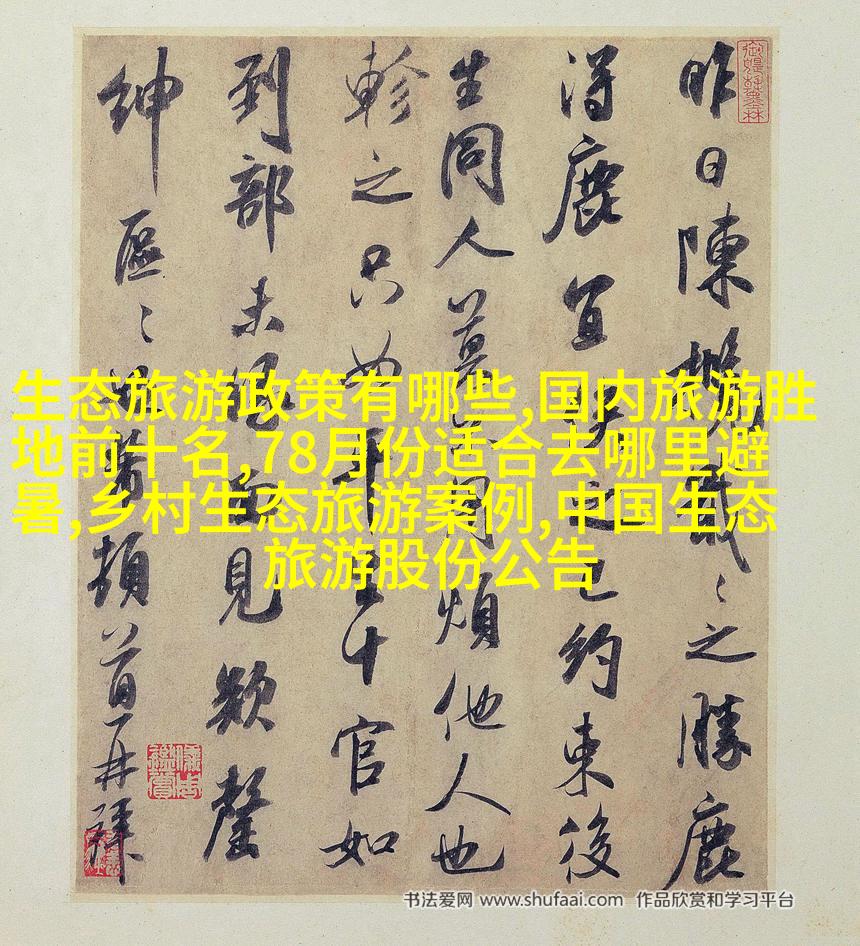 生态旅游政策有哪些,国内旅游胜
地前十名,78月份适合去哪里避
暑,乡村生态旅游案例,中国生态
旅游股份公告
昨日陳戢〻之勝鹿
得鹿宜之已约束後
生同人煩他人也
軫之只十官如
到部未面見欵罄
紳區〻頓首再拜
书法爱网 www.shufaai.com 作品欣赏和学习平台